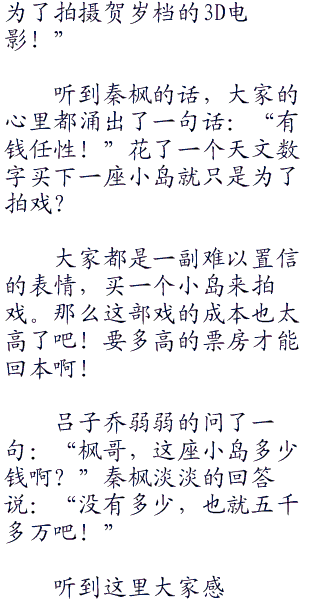 为了拍摄贺岁档的3D电
影！”
听到秦枫的话，大家的
心里都涌出了一句话：“有
钱任性！”花了一个天文数
字买下一座小岛就只是为了
拍戏？
大家都是一副难以置信
的表情，买一个小岛来拍
戏。那么这部戏的成本也太
高了吧！要多高的票房才能
回本啊！
吕子乔弱弱的问了一
句：“枫哥，这座小岛多少
钱啊？”秦枫淡淡的回答
说：“没有多少，也就五千
多万吧！”
听到这里大家感